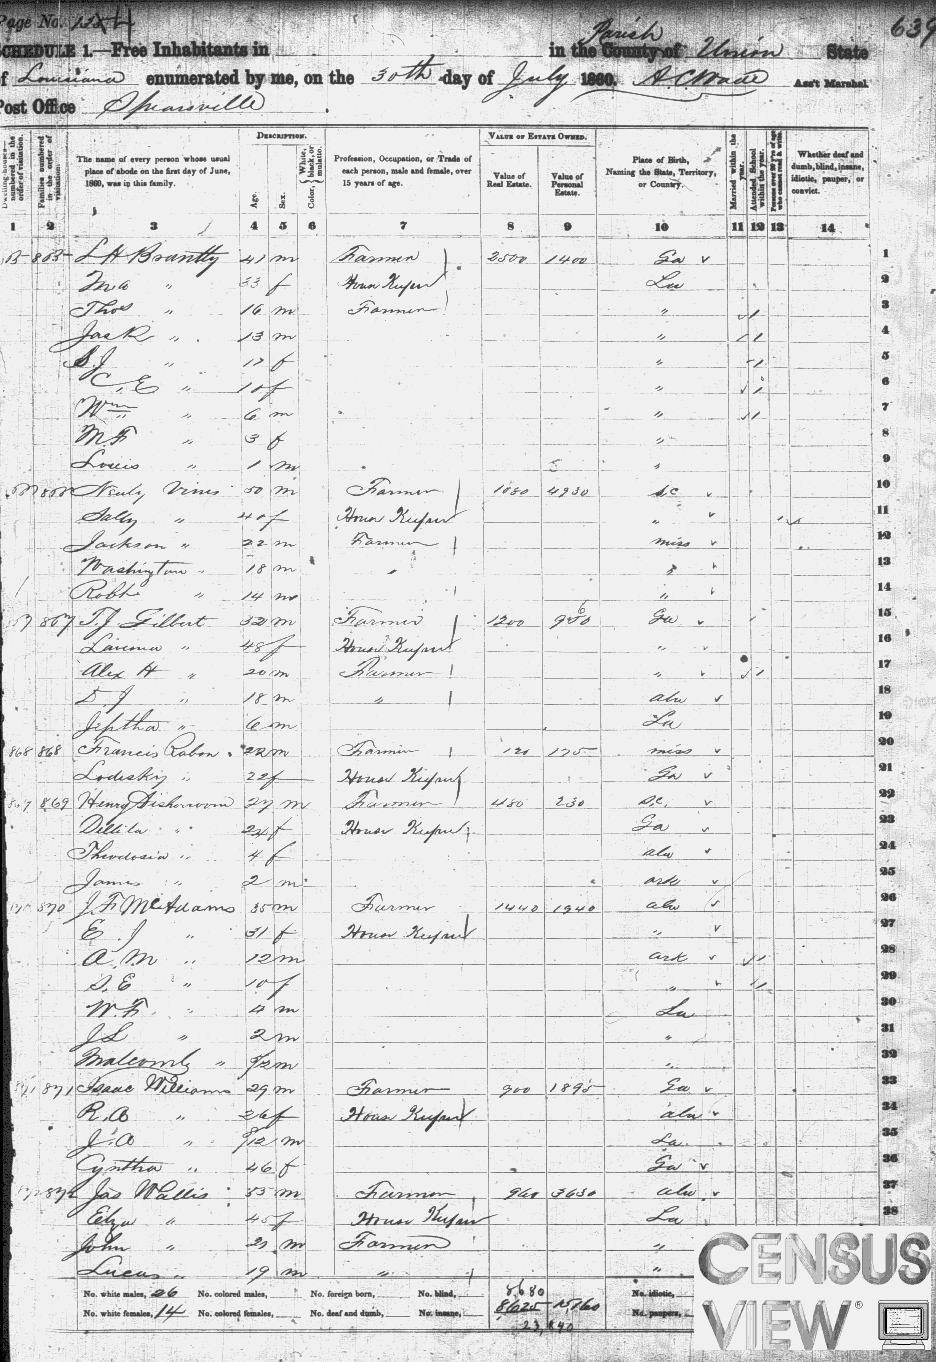 Page No. 639
SCHEDULE 1.—Free Inhabitants in in the County of Parish Union State
of Louisiana enumerated by me, on the 30th day of July 1860. A. C. Wade Ass't Marshal
Post Office Spearsville
DESCRIPTION. VALUE OF ESTATE OWNED.
Dwelling-houses— numbered in the order of visitation. Families numbered in the order of visitation. The name of every person whose usual place of abode on the first day of June, 1860, was in this family. Age. Sex. Color, White, black, or mulatto. Profession, Occupation, or Trade of each person, male and female, over 15 years of age. Value of Real Estate. Value of Personal Estate. Place of Birth, Naming the State, Territory, or Country. Married within the year. Attended School within the year. Persons over 20 y'rs of age who cannot read & write. Whether deaf and dumb, blind, insane, idiotic, pauper, or convict.
1 2 3 4 5 6 7 8 9 10 11 12 13 14
L H Brantly 41 m Farmer 2500 1400 Ga 1
" 33 f House Keeper La 2
Thos " 16 m Farmer " 1 3
Jas R " 13 m " 1 4
S. J " f " 1 5
C. E " 10 f " 1 6
Wm " 6 m " 1 7
M. F " 3 f " 8
Louis " 1 m " 9
Vines 50 m Farmer 1080 4930 S.C 10
Sally " 40 f House Keeper " 11
Jackson " 22 m Farmer miss 12
Washington " 18 m " " 13
Robt " 14 m " 14
867 T. J Gilbert 32 m Farmer 1200 Ga 15
" 48 f House Keeper " 16
Alex H " 20 m Farmer " 1 17
D J " 18 m " ala 18
Jeptha " 6 m La 19
868 868 Francis Rabon 22 m Farmer 120 175 miss 20
Lodesky " 22 f House Keeper Ga 21
869 Henry 27 m Farmer 480 230 S.C. 22
Dellila " 24 f House Keeper Ga 23
Theodosia " 4 f ala 24
James " 2 m ark 25
870 J. F. McAdams 35 m Farmer 1440 1940 ala 26
E. J " 31 f House Keeper " 27
A. M " 12 m ark 1 28
S. E " 10 f " 1 29
W. F. " 4 m La 30
J L " 2 m " 31
Malcomb " /12 m " 32
871 Isaac Williams 29 m Farmer 900 1895 Ga 33
R. A " 26 f House Keeper ala 34
J. A " /12 m La 35
Cyntha " 46 f Ga 36
872 Jas Wallis 53 m Farmer 960 3630 ala 37
Eliza " 45 f House Keeper La 38
John " 21 m Farmer "
Lucas " 19 m " "
No. white males, 26 No. colored males, No. foreign born, No. blind, 8680 No. idiotic,
No. white females, 14 No. colored females, No. deaf and dumb, No. insane, 8625 15160 No. paupers,
23,840
CENSUS
VIEW®